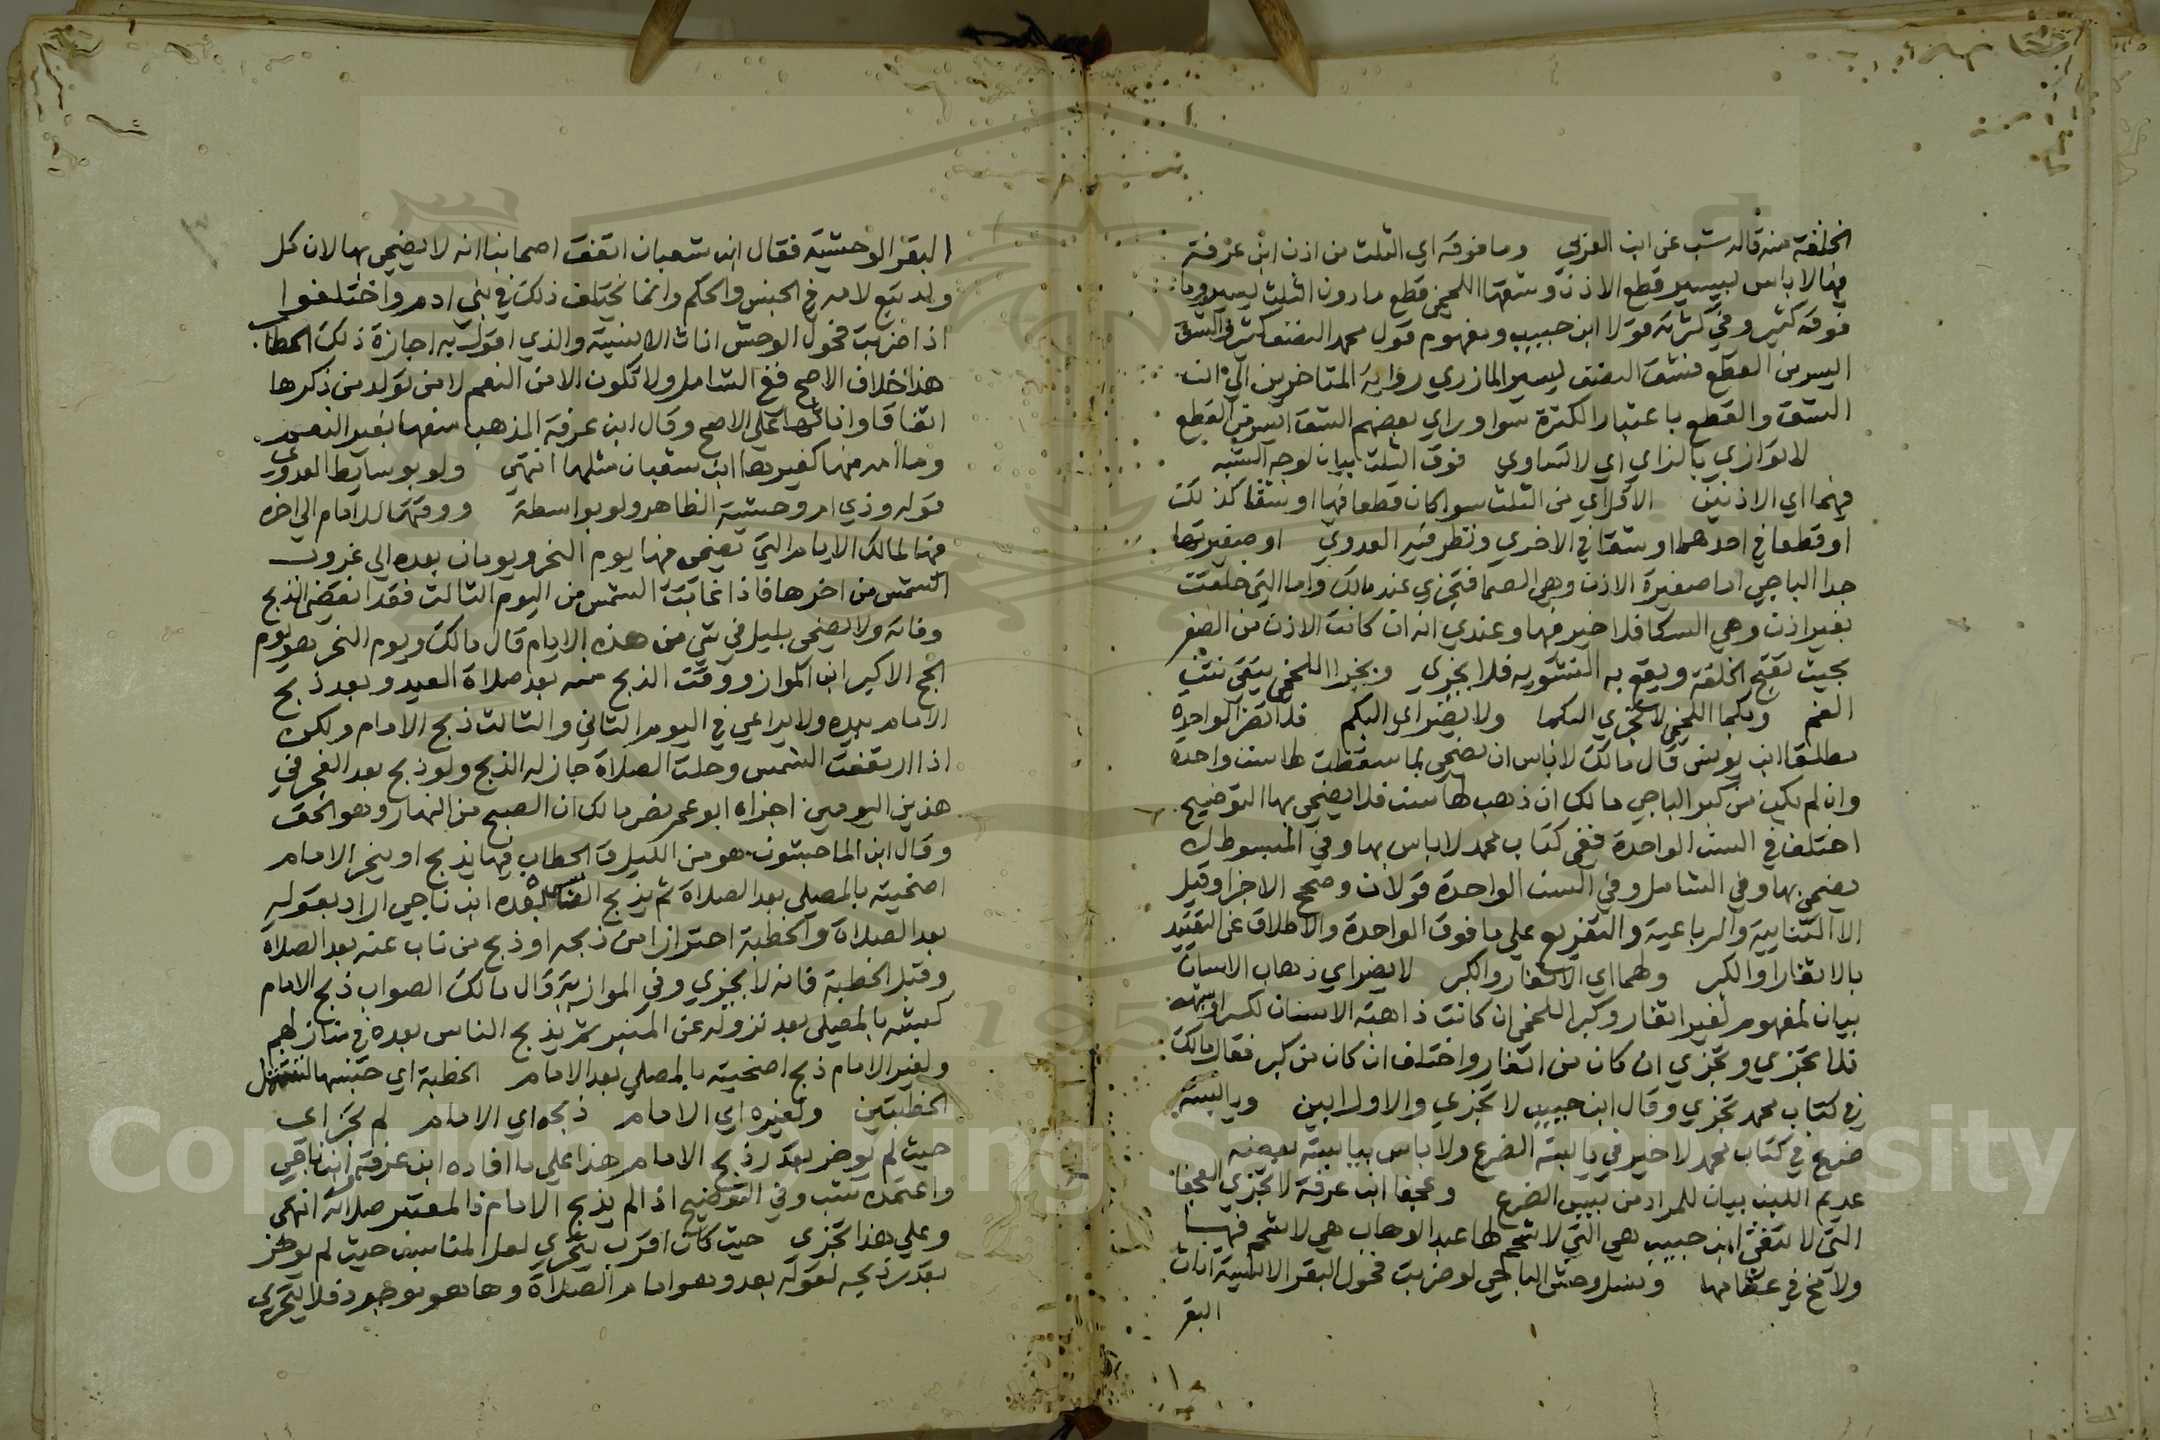 الخلقة منه قاله شب عن ابن العزبي وما فوقه اي الثلث من اذن ابن عرفة
فيها لا باس بيسير قطع الاذن وشقها اللخمي قطع ما دون الثلث يسير وما
فوقه كثير وفي كثرته قولا ابن حبيب ومفهوم قول محمد النصف كثير والشق
ايسر من القطع فشق النصف يسير المازري رواية المتاخرين الي ان
الشق والقطع باعتبار الكثرة سوا وراي بعضهم الشق ايسر من القطع
لا توازي بالزاي اي لا تساوي فوق الثلث بيان لوجه الشبه
فيهما اي الاذنين الاقل اي من الثلث سوا كان قطعا فيها او شقا كذلك
او قطعا في احدهما او شقا في الاخري ونظر فيه العدوي او صغيرتها
جدا الباجي اما صغيرة الاذن وهي الصما فتجزي عند مالك واما التي خلقت
بغير اذن وهي السكا فلا خير فيها وعندي انه ان كانت الاذن من الصغر
بحيث تقبح الخلقة ويقع به التشويه فلا يجزي وبخرا اللخمي يتقي نتن
الفم وبكما اللخمي لا تجزي البكما ولا يضر اي البكم قلا تضر الواحدة
مطلقا ابن يونس قال مالك لا باس ان يضحي بما سقطت لها سن واحدة
وان لم يكن من كبر الباجي مالك ان ذهب لها سن فلا يضحي بها التوضيح
اختلف في السن الواحدة ففي كتاب محمد لا باس بها وفي المبسوط لا
يضحي بها وفي الشامل وفي السن الواحدة قولان وصحح الاجزا وقيل
الا الثنايية والرباعية والتفريع علي ما فوق الواحدة والاطلاق عن التقييد
بالاثغار او الكبر ولهما اي الاثغار والكبر لا يضر اي ذهاب الاسنان
بيان لمفهوم لغير اثغار وكبر اللخمي ان كانت ذاهبة الاسنان لكسر او شبهه
فلا تجزي وتجزي ان كان من اثغار واختلف ان كان من كبر فقال مالك
في كتاب محمد تجزي وقال ابن حبيب لا تجزي والاول ابين ويابسة
ضرع في كتاب محمد لا خير في يابسة الضرع ولا باس بيابسة بعضه
عديم اللبن بيان للمراد من يبس الضرع وعجفا ابن عرفة لا تجزي العجفا
التي لا تنقي ابن حبيب هي التي لا شحم لها عبد الوهاب هي لا شحم فيها
ولا مخ في عظامها ونسل وحش الباجي لو ضربت فحول البقر الانسية اناث
البقر
البقر الوحشية فقال ابن شعبان اتفق اصحابنا انه لا يضحي بها لان كل
ولد يتبع لامه في الجنس والحكم وانما يختلف ذلك في بني ادم واختلفوا
اذا ضربت فحول الوحش اناث الانسية والذي اقول به اجازة ذلك الحطاب
هذا خلاف الاصح ففي الشامل ولا تكون الا من النعم لا من تولد من ذكرها
اتفاقا واناثها علي الاصح وقال ابن عرفة المذهب منعها بغير النعم
وما امه منها كغيرها ابن شعبان مثلها انتهي ولو بوسايط العدوي
قوله وذي ام وحشية الظاهر ولو بواسطة ووقتها للامام الي اخره
فيها لمالك الايام التي يضحي فيها يوم النحر ويومان بعده الي غروب
الشمس من اخرها فاذا غابت الشمس من اليوم الثالث فقد انقضي الذبح
وفاته ولا يضحي بليل في شي من هذه الايام قال مالك ويوم النحر هو يوم
الحج الاكبر ابن المواز ووقت الذبح منه بعد صلاة العيد وبعد ذبح
الامام بيده ولا يراعي في اليوم الثاني والثالث ذبح الامام ولكن
اذا ارتفعت الشمس وحلت الصلاة جاز له الذبح ولو ذبح بعد الفجر في
هذين اليومين اجزاه ابو عمر نص مالك ان الصبح من النهار وهو الحق
وقال ابن الماجشون هو من الليل ق الحطاب فيها يذبح او ينحر الامام
اضحيته بالمصلي بعد الصلاة ثم يذبح الناس بعده ابن ناجي اراد بقوله
بعد الصلاة والخطبة احترازا من ذبحه او ذبح من ناب عنه بعد الصلاة
وقبل الخطبة فانه لا يجزي وفي الموازية قال مالك الصواب ذبح الامام
كبشه بالمصلي بعد نزوله عن المنبر ثم يذبح الناس بعده في منازلهم
ولغير الامام ذبح اضحيته بالمصلي بعد الامام الخطبة اي جنسها لتشمل
الخطبتين ولغيره اي الامام ذبحه اي الامام لم تجز اي
حيث لم يوخر بعذر ذبح الامام هذا علي ما افاده ابن عرفة ابن ناجي
واعتمده شب وفي التوضيح اذا لم يذبح الامام فالمعتبر صلاته انتهي
وعلي هذا تجزي حيث كان اقرب يتحري لعل المناسب حيث لم يوخر
بعذر ذبحه لقوله بعد وهو امام الصلاة وها هو موجود فلا يتحري